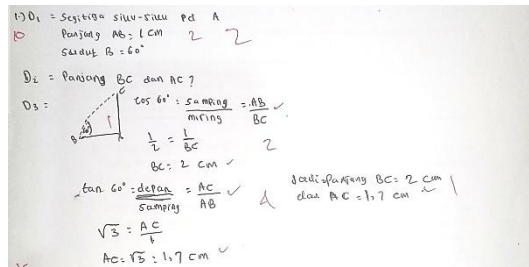 1.) D1 = Segitiga siku-siku Pd A
10
Panjang AB = 1 cm 2 2
Sudut B = 60°
Di = Panjang BC dan AC ?
D3 =
C
B
60°
A
1
cos 60° = samping = AB ✓
miring BC
1/2 = 1/BC 2
BC = 2 cm ✓
tan 60° = depan = AC ✓
samping AB
4
√3 = AC/1
AC = √3 = 1,7 cm ✓
Jadi panjang BC = 2 cm
dan AC = 1,7 cm ✓ 1